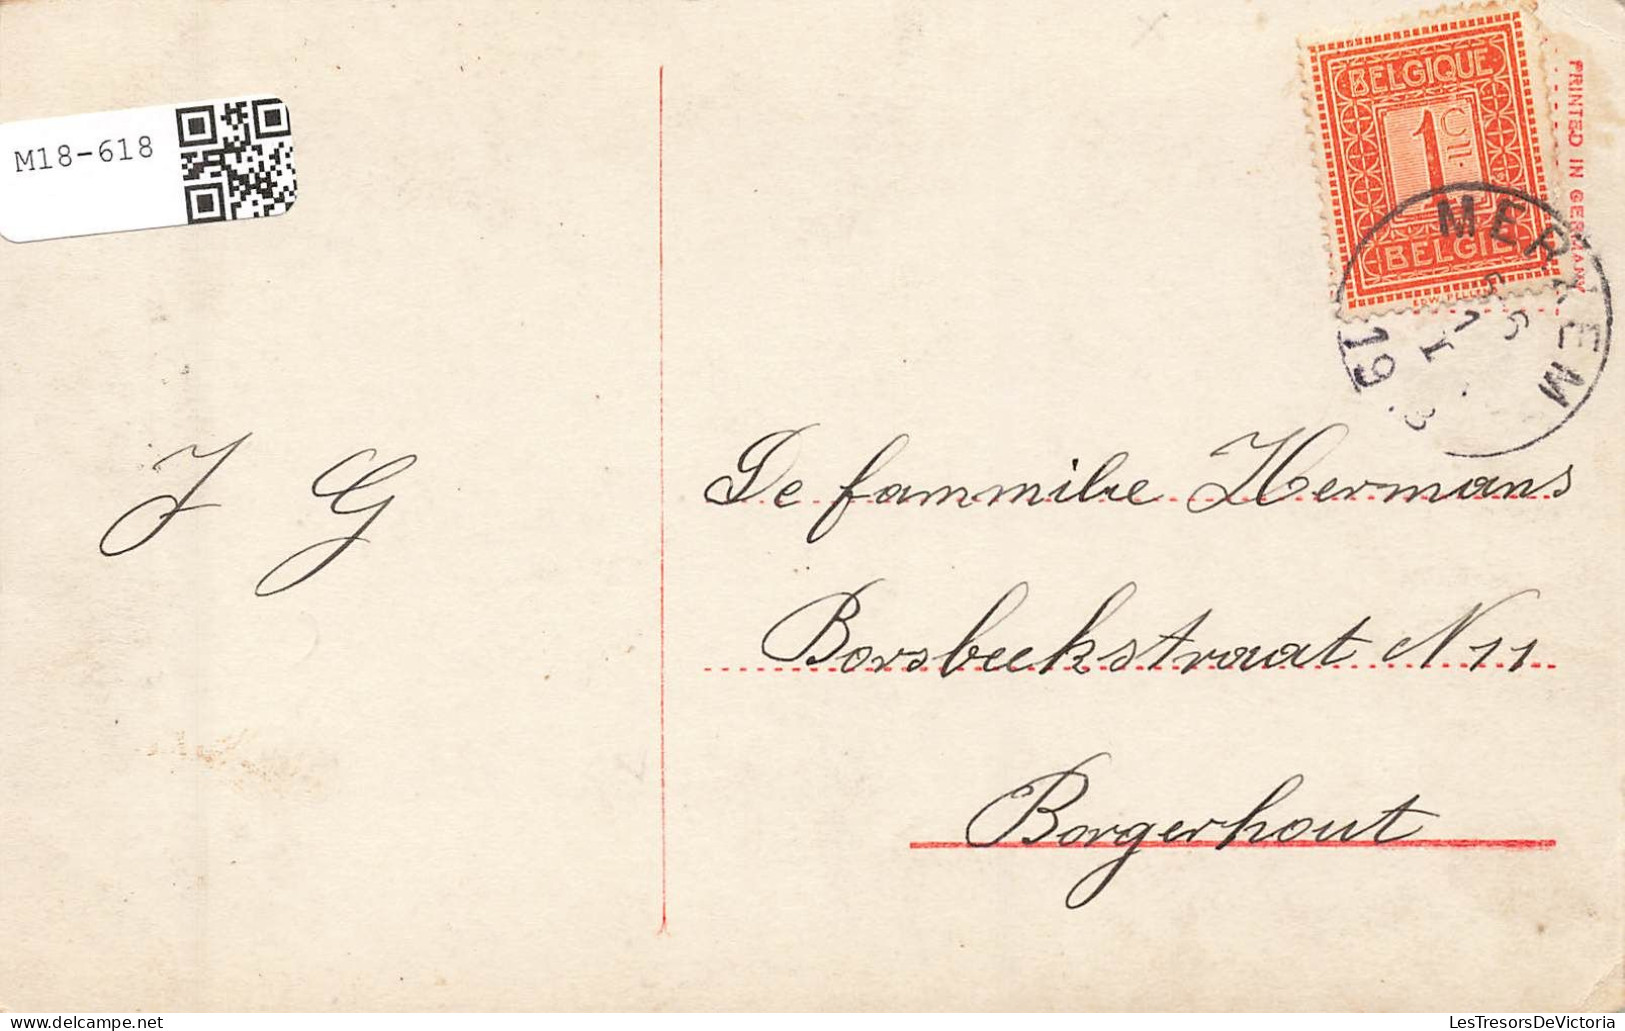 M18-618
BELGIQUE
1 C
BELGIË
PRINTED IN GERMANY
MERXEM
19
J G
De fammilie Hermans
Borsbeekstraat N 11
Borgerhout
LesTresorsDeVictoria
www.delcampe.net